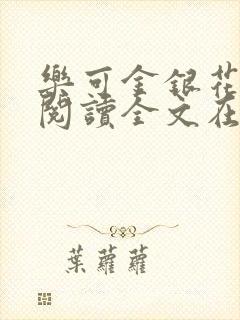 樂可金銀花
閱讀全文在
葉蘿蘿